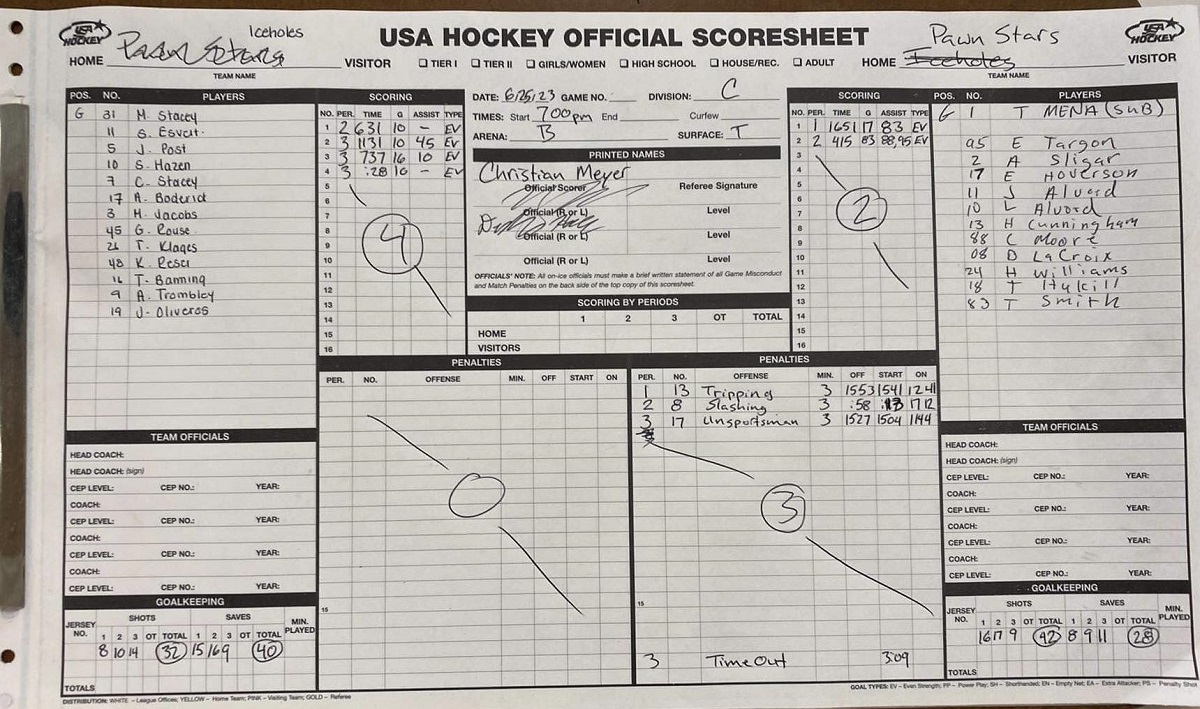 USA HOCKEY
Iceholes
Pawn Stars
HOME
VISITOR
TEAM NAME
USA HOCKEY OFFICIAL SCORESHEET
☐ TIER I ☐ TIER II ☐ GIRLS/WOMEN ☐ HIGH SCHOOL ☐ HOUSE/REC. ☐ ADULT
Pawn Stars
HOME Iceholes VISITOR
TEAM NAME
USA HOCKEY
POS. NO. PLAYERS
G 31 M. Stacey
11 S. Esvcit
5 J. Post
10 S. Hazen
7 C. Stacey
17 A. Boderick
3 H. Jacobs
45 G. Rouse
26 T. Klages
48 K. Reser
16 T. Banning
9 A. Trombley
19 J. Oliveros
SCORING
NO. PER. TIME G ASSIST TYPE
1 2 631 10 - EV
2 3 1131 10 45 EV
3 3 737 16 10 EV
4 3 :28 10 - EV
5
6
7
8
9
10
11
12
13
14
15
16
4
DATE: 6/25/23 GAME NO. DIVISION: C
TIMES: Start 7:00pm End Curfew
ARENA: B SURFACE: T
PRINTED NAMES
Christian Meyer
Official Scorer Referee Signature
Official (R or L) Level
Official (R or L) Level
Official (R or L) Level
OFFICIALS' NOTE: All on-ice officials must make a brief written statement of all Game Misconduct
and Match Penalties on the back side of the top copy of this scoresheet.
SCORING BY PERIODS
1 2 3 OT TOTAL
HOME
VISITORS
SCORING
NO. PER. TIME G ASSIST TYPE
1 1 1651 17 83 EV
2 2 415 83 88,95 EV
3
4
5
6
7
8
9
10
11
12
13
14
15
16
2
POS. NO. PLAYERS
G 1 T MENA (SUB)
95 E Targon
2 A Sligar
17 E Hoverson
11 J Alvord
10 L Alvord
13 H Cunningham
88 C Moore
08 D LaCroix
24 H Williams
18 T
83 T Smith
PENALTIES
PER. NO. OFFENSE MIN. OFF START ON
15
PENALTIES
PER. NO. OFFENSE MIN. OFF START ON
1 13 Tripping 3 1553 1541 1241
2 8 Slashing 3 :58 :13 1712
3 17 Unsportsman 3 1527 1504 1144
3
15
3 TimeOut 3:09
TEAM OFFICIALS
HEAD COACH:
HEAD COACH: (sign)
CEP LEVEL: CEP NO.: YEAR:
COACH:
CEP LEVEL: CEP NO.: YEAR:
COACH:
CEP LEVEL: CEP NO.: YEAR:
COACH:
CEP LEVEL: CEP NO.: YEAR:
GOALKEEPING
JERSEY NO. SHOTS SAVES MIN. PLAYED
1 2 3 OT TOTAL 1 2 3 OT TOTAL
8 10 14 32 15 16 9 40
TOTALS
TEAM OFFICIALS
HEAD COACH:
HEAD COACH: (sign)
CEP LEVEL: CEP NO.: YEAR:
COACH:
CEP LEVEL: CEP NO.: YEAR:
COACH:
CEP LEVEL: CEP NO.: YEAR:
COACH:
CEP LEVEL: CEP NO.: YEAR:
GOALKEEPING
JERSEY NO. SHOTS SAVES MIN. PLAYED
1 2 3 OT TOTAL 1 2 3 OT TOTAL
16 17 9 42 8 9 11 28
TOTALS
DISTRIBUTION: WHITE – League Offices; YELLOW – Home Team; PINK – Visiting Team; GOLD – Referee
GOAL TYPES: EV – Even Strength; PP – Power Play; SH – Shorthanded; EN – Empty Net; EA – Extra Attacker; PS – Penalty Shot